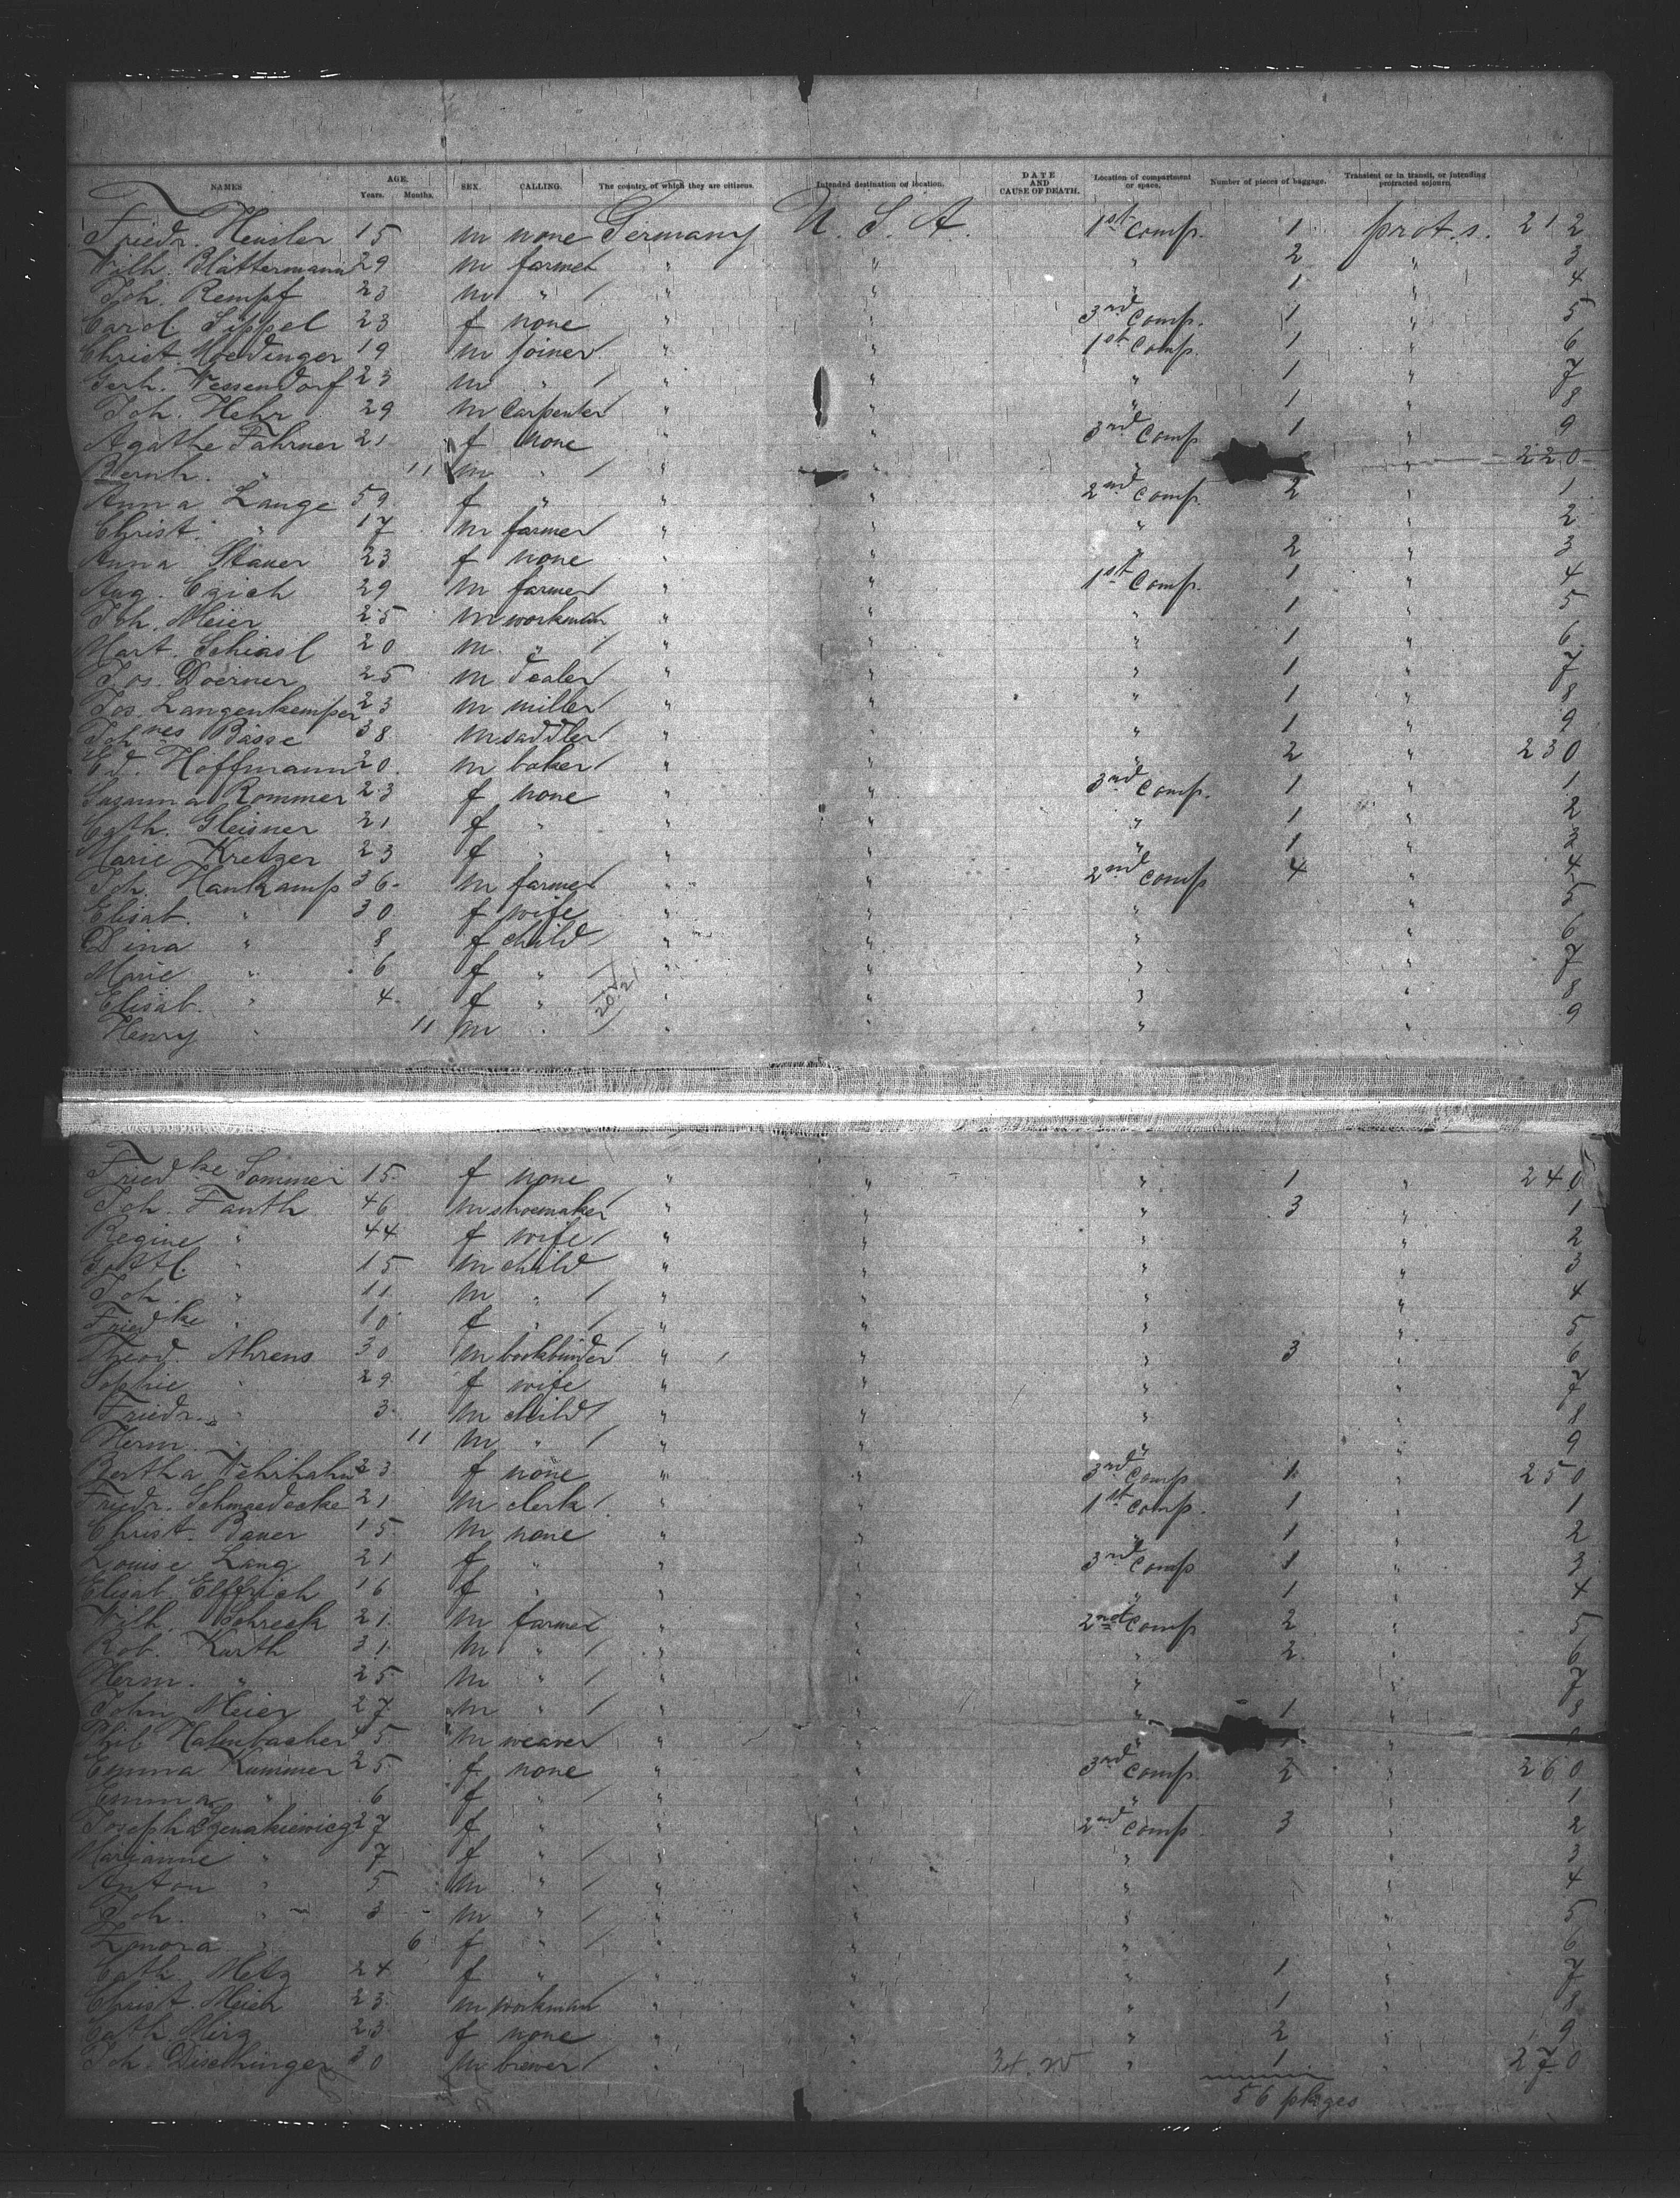 NAMES AGE. Years. Months. SEX. CALLING. The country of which they are citizens. Intended destination or location. DATE AND CAUSE OF DEATH. Location of compartment or space. Number of pieces of baggage. Transient or in transit, or intending protracted sojourn.
Friedr. Heusler 15 m none Germany U. S. A. 1st Comp. 1 prot. s. 212
Wilh. Blättermann 29 m farmer " " " 2 " 3
Joh. Rempf 23 m " " " 1 " 4
Carol. Sippel 23 f none " " 3rd Comp. 1 " 5
Christ. Moedinger 19 m joiner " " 1st Comp. 1 " 6
Gerh. Wessendorf 23 m " " " " 1 " 7
Joh. Hehr 29 m Carpenter " " " 1 " 8
Agathe Fahrner 21 f none " " 3rd Comp 1 " 9
Bernh. " 11 m " " " " " 220
Anna Lange 59 f " " " 2nd Comp. 2 " 1
Christ. " 17 m farmer " " " " 2
Anna Stauer 23 f none " " " 2 " 3
Aug. 29 m farmer " " 1st Comp. 1 " 4
Joh. Meier 25 m workman " " " 1 " 5
Mart. Schiasl 20 m " " " " 1 " 6
Jos. Doerner 25 m dealer " " " 1 " 7
Jos. Langenkemper 23 m miller " " " 1 " 8
Johnes Basse 38 m saddler " " " 1 " 9
Ed. Hoffmann 20 m baker " " " 2 " 230
Susanna Rommer 23 f none " " 3rd Comp. 1 " 1
Cath. Gleisner 21 f " " " " 1 " 2
Marie Kretzer 23 f " " " " 1 " 3
Joh. Hankamp 36 m farmer " " 2nd Comp 4 " 4
Elisab. " 30 f wife " " " " 5
Dina " 8 f child " " " " 6
Marie " 6 f " " " " " 7
Elisab. " 4 f " " " " " 8
Henry " 11 m " " " " " 9
Friedke Sommer 15 f none " " " 1 " 240
Joh. Fauth 46 m shoemaker " " " 3 " 1
Regine " 44 f wife " " " " 2
Gottl. " 15 m child " " " " 3
Joh. " 11 m " " " " " 4
Friedke " 10 f " " " " " 5
Theod. Ahrens 30 m bookbinder " " " 3 " 6
Sophie " 29 f wife " " " " 7
Friedr. " 3 m child " " " " 8
Herm. " 11 m " " " " " 9
Bertha Wehrhahn 23 f none " " 3rd Comp 1 " 250
Friedr. Schmaedecke 21 m clerk " " 1st Comp. 1 " 1
Christ. Bauer 15 m none " " " 1 " 2
Louise Lang 21 f " " " 3rd Comp 1 " 3
Elisab. Elffrich 16 f " " " " 1 " 4
Wilh. Schreck 21 m farmer " " 2nd Comp 2 " 5
Rob. Kurth 31 m " " " " 2 " 6
Herm. " 25 m " " " " " 7
John Meier 27 m " " " " 1 " 8
Phil. Halmbacher 45 m weaver " " " 1 "
Emma Kummer 25 f none " " 3rd Comp. 2 " 260
Emma " 6 f " " " " " 1
27 f " " " 2nd Comp. 3 " 2
Marianne " 7 f " " " " " 3
Anton " 5 m " " " " " 4
Joh. " 3 m " " " " " 5
" 6 f " " " " " 6
Cath. Metz 24 f " " " " 1 " 7
Christ. Meier 23 m workman " " " 1 " 8
Cath. Merz 23 f none " " " 2 " 9
Joh. Dischinger 30 m brewer " " 1 " 270
56 pkges